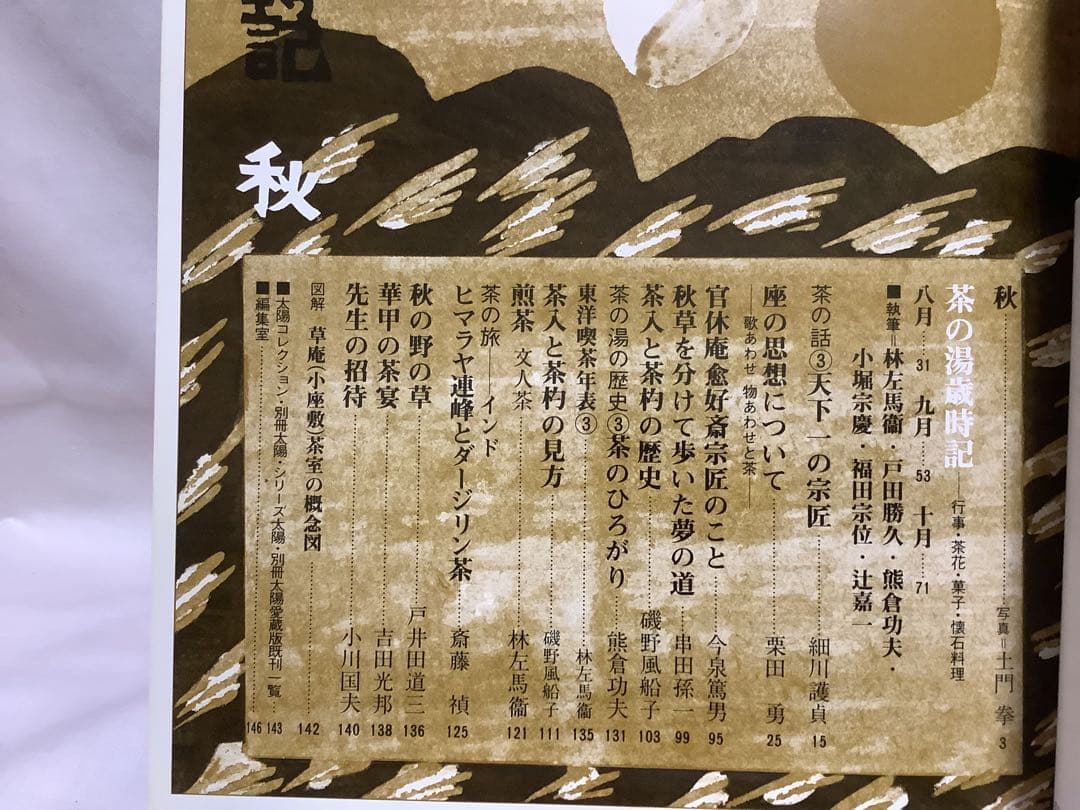 記
秋
秋 写真=土門 拳 3
茶の湯歳時記――行事・茶花・菓子・懐石料理
八月…31 九月…53 十月…71
■執筆=林左馬衞・戸田勝久・熊倉功夫・
小堀宗慶・福田宗位・辻嘉一
茶の話③天下一の宗匠 細川護貞 15
座の思想について 栗田 勇 25
――歌あわせ 物あわせと茶――
官休庵愈好斎宗匠のこと 今泉篤男 95
秋草を分けて歩いた夢の道 串田孫一 99
茶入と茶杓の歴史 磯野風船子 103
茶の湯の歴史③茶のひろがり 熊倉功夫 131
東洋喫茶年表③ 林左馬衞 135
茶入と茶杓の見方 磯野風船子 111
煎茶 文人茶 林左馬衞 121
茶の旅――インド
ヒマラヤ連峰とダージリン茶 斎藤 禎 125
秋の野の草 戸井田道三 136
華甲の茶宴 吉田光邦 138
先生の招待 小川国夫 140
図解 草庵(小座敷)茶室の概念図 142
■太陽コレクション・別冊太陽・シリーズ太陽・別冊太陽愛蔵版既刊一覧 143
■編集室 146